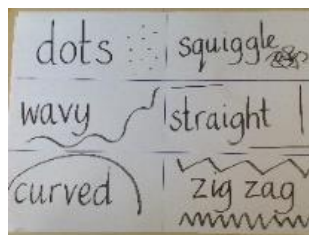 dots
squiggle
wavy
straight
curved
zig zag